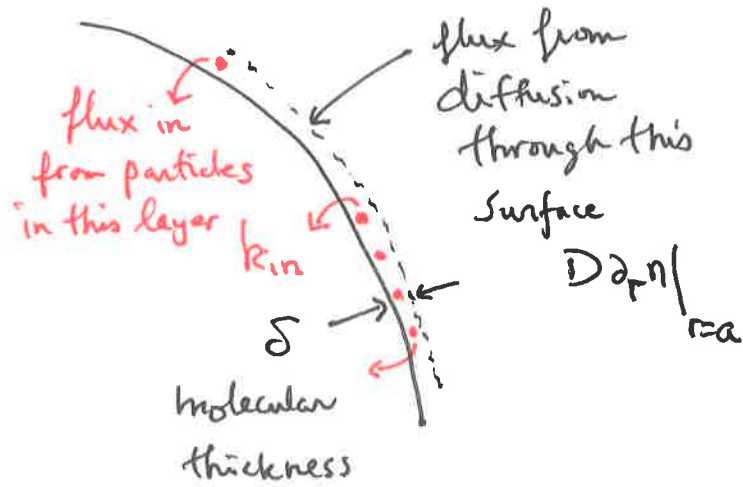 flux from
diffusion
through this
surface
D∂ᵣn|ᵣ₌ₐ
flux in
from particles
in this layer
kin
δ
molecular
thickness